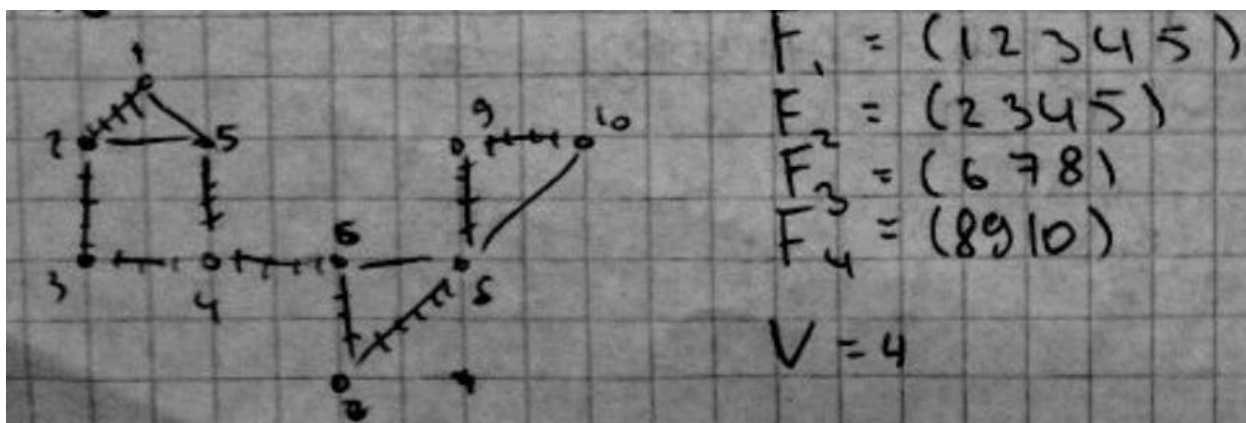 1
2 5 9 10
3 4 6 8
7
F₁ = (1 2 3 4 5)
F₂ = (2 3 4 5)
F₃ = (6 7 8)
F₄ = (8 9 10)
V = 4